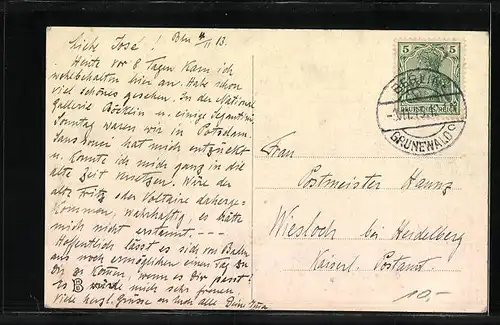 Liebe José! Bln 4/II 13.
Heute vor 8 Tagen kam ich
wohlbehalten hier an. Habe schon
viel schönes gesehen. In der National
Gallerie Böcklin u. einige Segantini
Sonntag waren wir in Potsdam.
Sanssouci hat mich entzückt
u. konnte ich mich ganz in die
alte Zeit versetzen. Wäre der
alte Fritz oder Voltaire daherge-
kommen, wahrhaftig, es hätte
mich nicht erstaunt. ---
Hoffentlich lässt es sich von Baden
aus noch ermöglichen einen Tag zu
Dir zu kommen, wenn es Dir passt!
Es würde mich sehr freuen.
Viele herzl. Grüsse an Euch alle Deine
5 5
DEUTSCHES REICH
BERLIN
GRUNEWALD
Frau
Postmeister Hanns
Wiesloch bei Heidelberg
Kaiserl. Postamt.
10.-
B